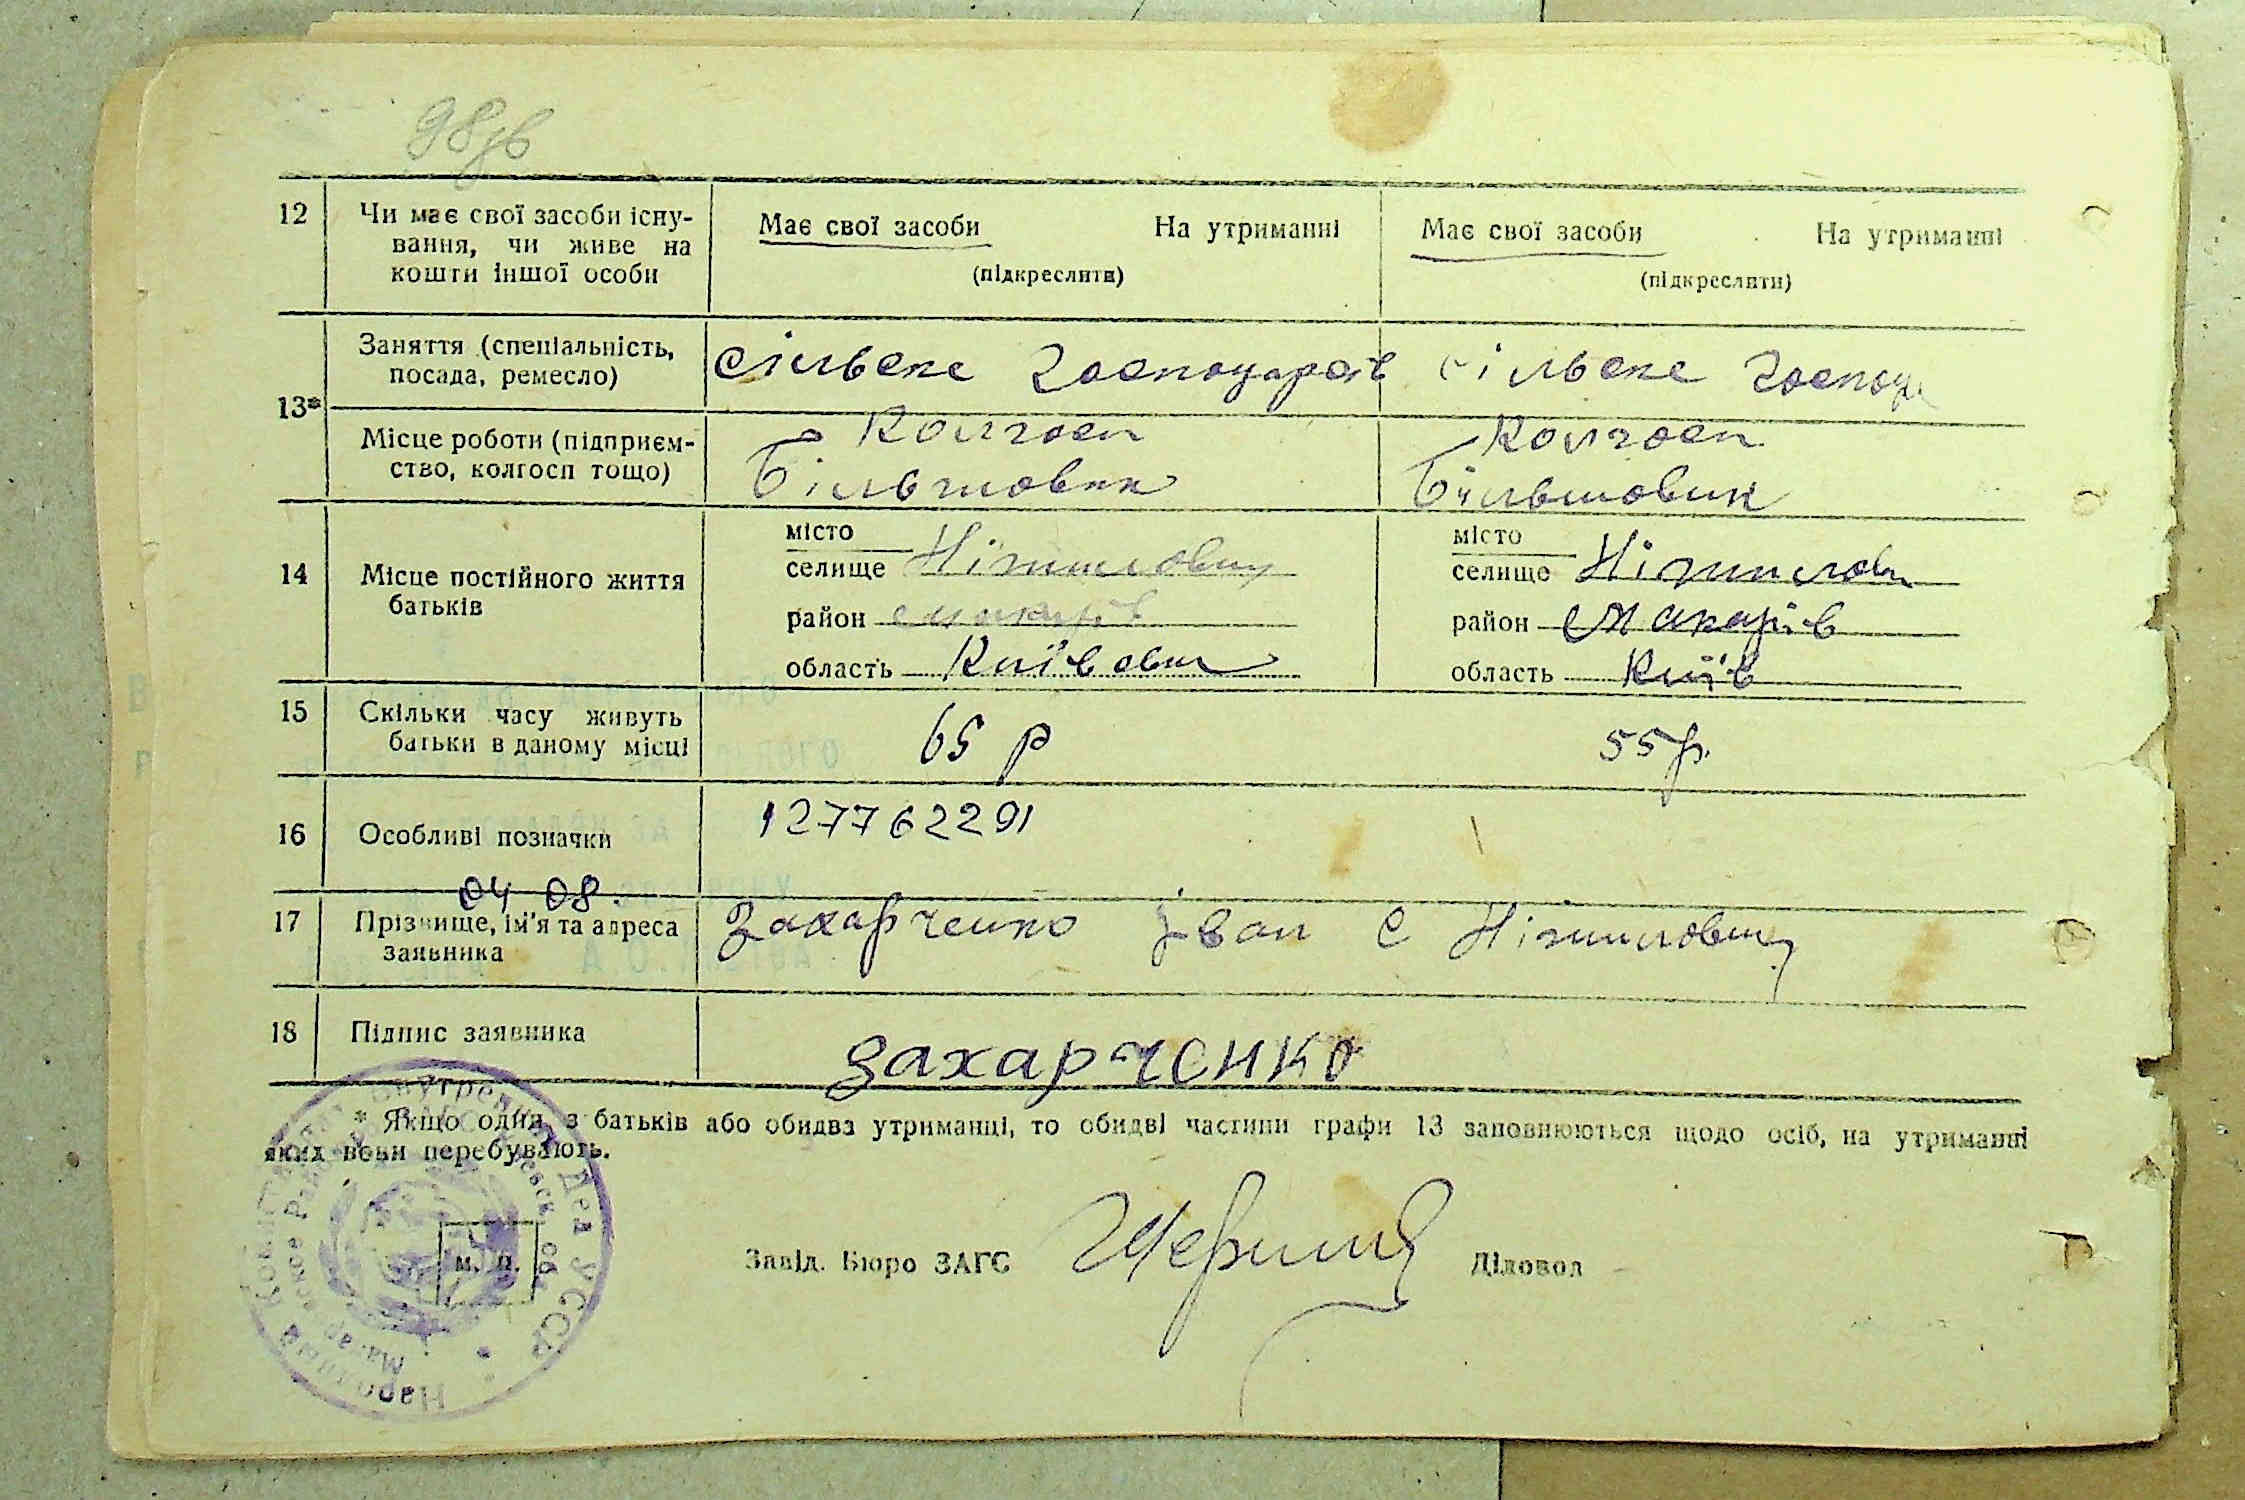 98зв
12 Чи має свої засоби існу- Має свої засоби На утриманні Має свої засоби На утриманні
вання, чи живе на
кошти іншої особи (підкреслити) (підкреслити)
13* Заняття (спеціальність, сільске господарсів сільске господ
посада, ремесло)
Місце роботи (підприєм- Колгосп Колгосп
ство, колгосп тощо) Більшовик Більшовик
14 Місце постійного життя місто місто
батьків селище Ніжиловичі селище Ніжилови
район Макарів район Макарів
область область Київ
15 Скільки часу живуть 65 р 55 р.
батьки в даному місці
16 Особливі позначки 127762291
04 08.
17 Прізвище, ім'я та адреса Захарченко Іван с Ніжиловичі
заявника
18 Підпис заявника Захарченко
* Якщо один з батьків або обидва утриманці, то обидві частини графи 13 заповнюються щодо осіб, на утриманні
яких вони перебувають.
м. п.
Завід. Бюро ЗАГС Діловод
Народный Комиссариат Внутренних Дел УССР